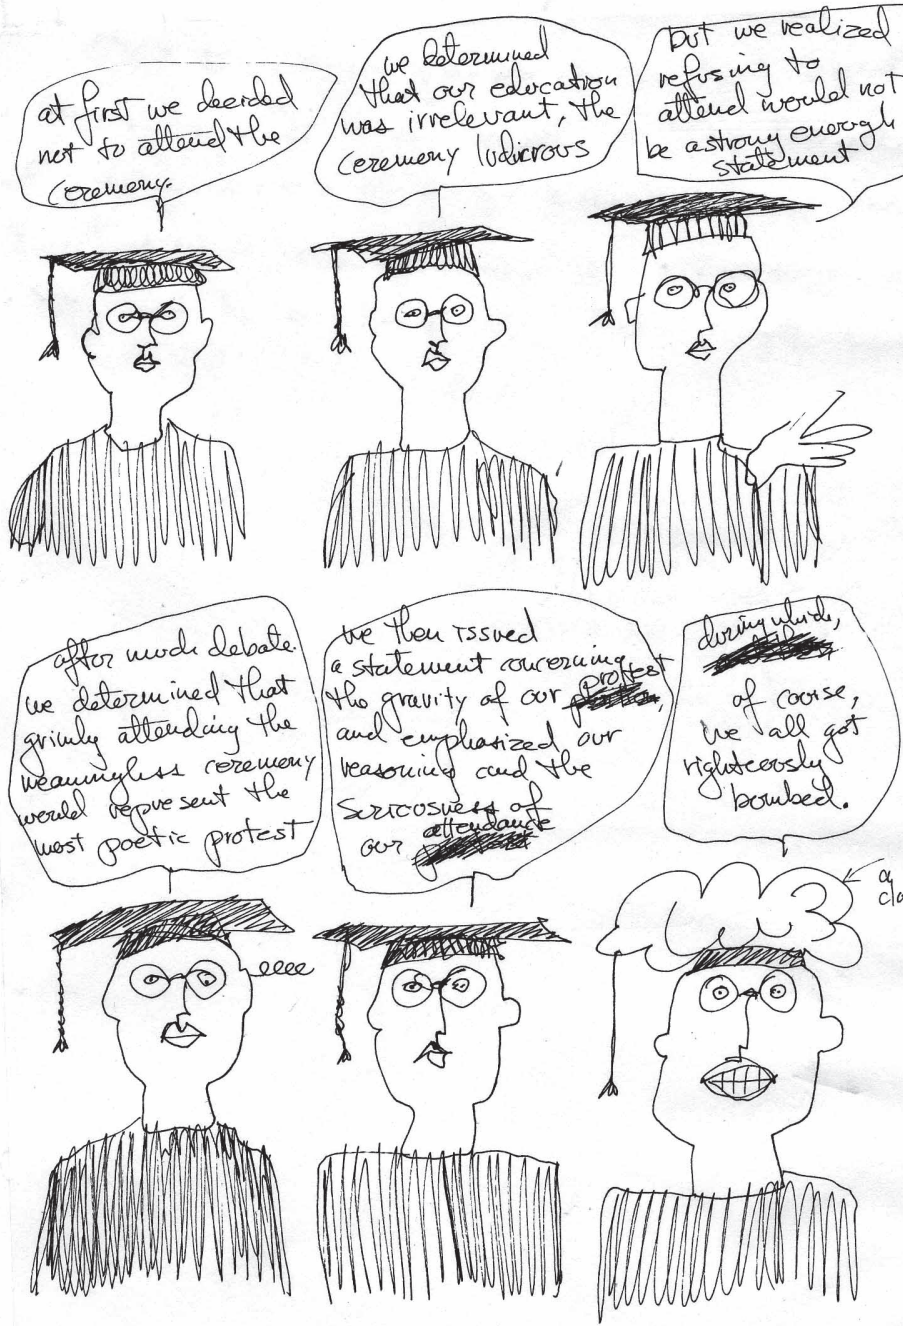 at first we decided
not to attend the
ceremony.
we determined
that our education
was irrelevant, the
ceremony ludicrous
but we realized
refusing to
attend would not
be a strong enough
statement
after much debate
we determined that
grimly attending the
meaningless ceremony
would represent the
most poetic protest
we then issued
a statement concerning
the gravity of our protest
and emphasized our
reasoning and the
seriousness of
our attendance
during which,
of course,
we all got
righteously
bombed.
a